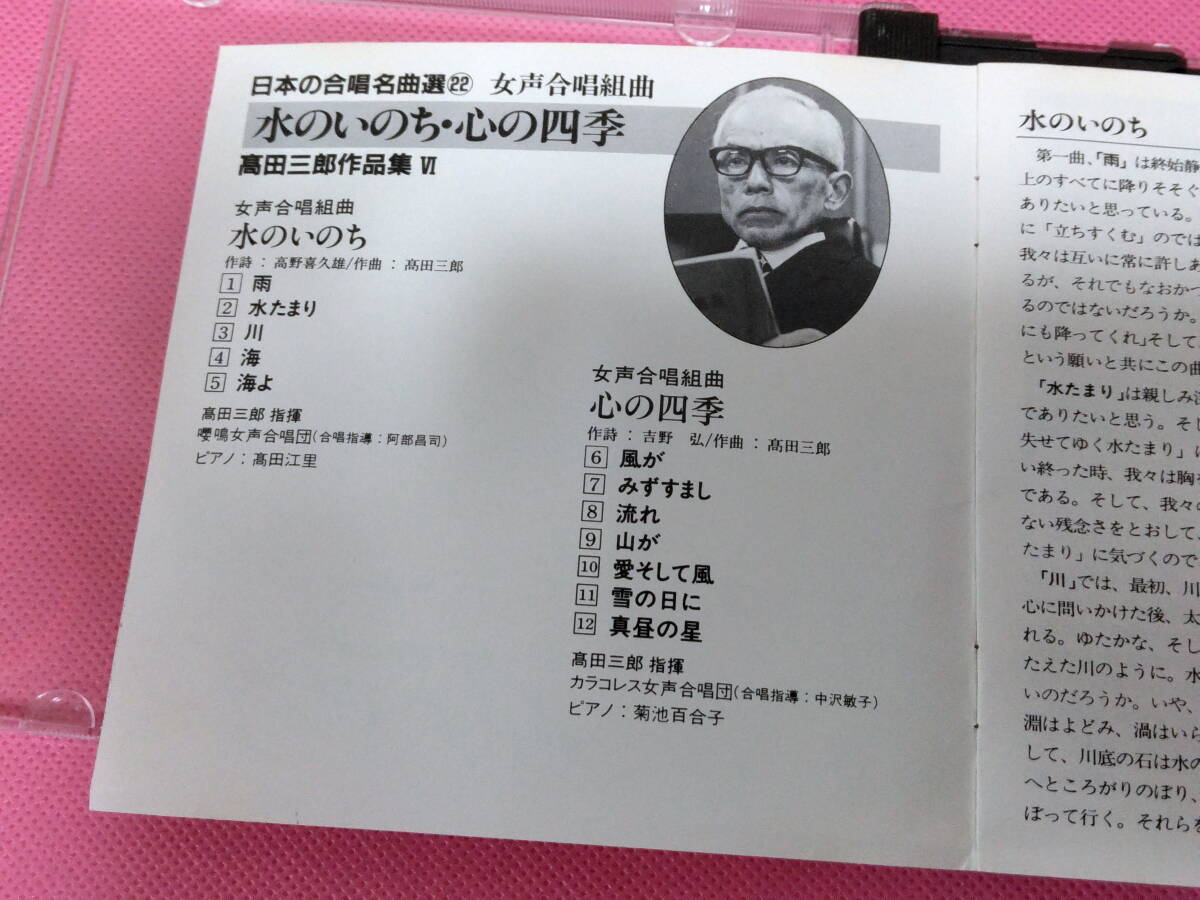 日本の合唱名曲選㉒ 女声合唱組曲
水のいのち・心の四季
髙田三郎作品集 Ⅵ
女声合唱組曲
水のいのち
作詩：高野喜久雄/作曲：髙田三郎
1 雨
2 水たまり
3 川
4 海
5 海よ
髙田三郎 指揮
嚶鳴女声合唱団(合唱指導：阿部昌司)
ピアノ：髙田江里
女声合唱組曲
心の四季
作詩：吉野 弘/作曲：髙田三郎
6 風が
7 みずすまし
8 流れ
9 山が
10 愛そして風
11 雪の日に
12 真昼の星
髙田三郎 指揮
カラコレス女声合唱団(合唱指導：中沢敏子)
ピアノ：菊池百合子
水のいのち
第一曲、「雨」は終始静
上のすべてに降りそそぐ
ありたいと思っている。
に「立ちすくむ」のでは
我々は互いに常に許しあ
るが、それでもなおかつ
るのではないだろうか。
にも降ってくれ」そして
という願いと共にこの曲
「水たまり」は親しみ深
でありたいと思う。そし
失せてゆく水たまり」に
い終った時、我々は胸を
である。そして、我々の
ない残念さをとおして、
たまり」に気づくので
「川」では、最初、川
心に問いかけた後、太
れる。ゆたかな、そし
たえた川のように。水
いのだろうか。いや、
淵はよどみ、渦はいら
して、川底の石は水の
へところがりのぼり、
ぼって行く。それらを